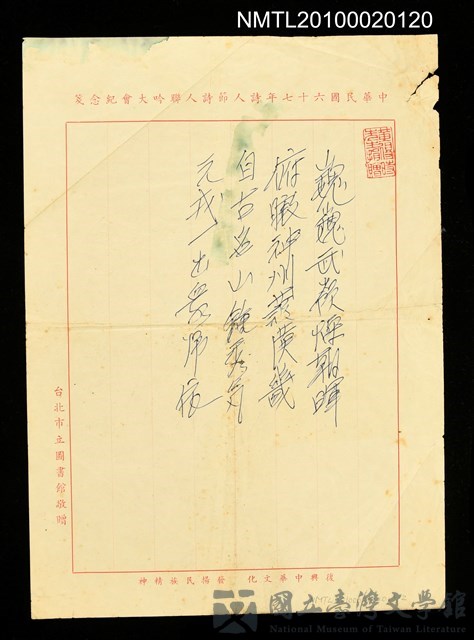 NMTL20100020120
中華民國六十七年詩人節詩人聯吟大會紀念箋
巍巍武嶺燦朝暉
俯瞰神州廣畿
自古名山鍾秀氣
元戎一出師
台北市立圖書館敬贈
復興中華文化 發揚民族精神
國立臺灣文學館
National Museum of Taiwan Literature